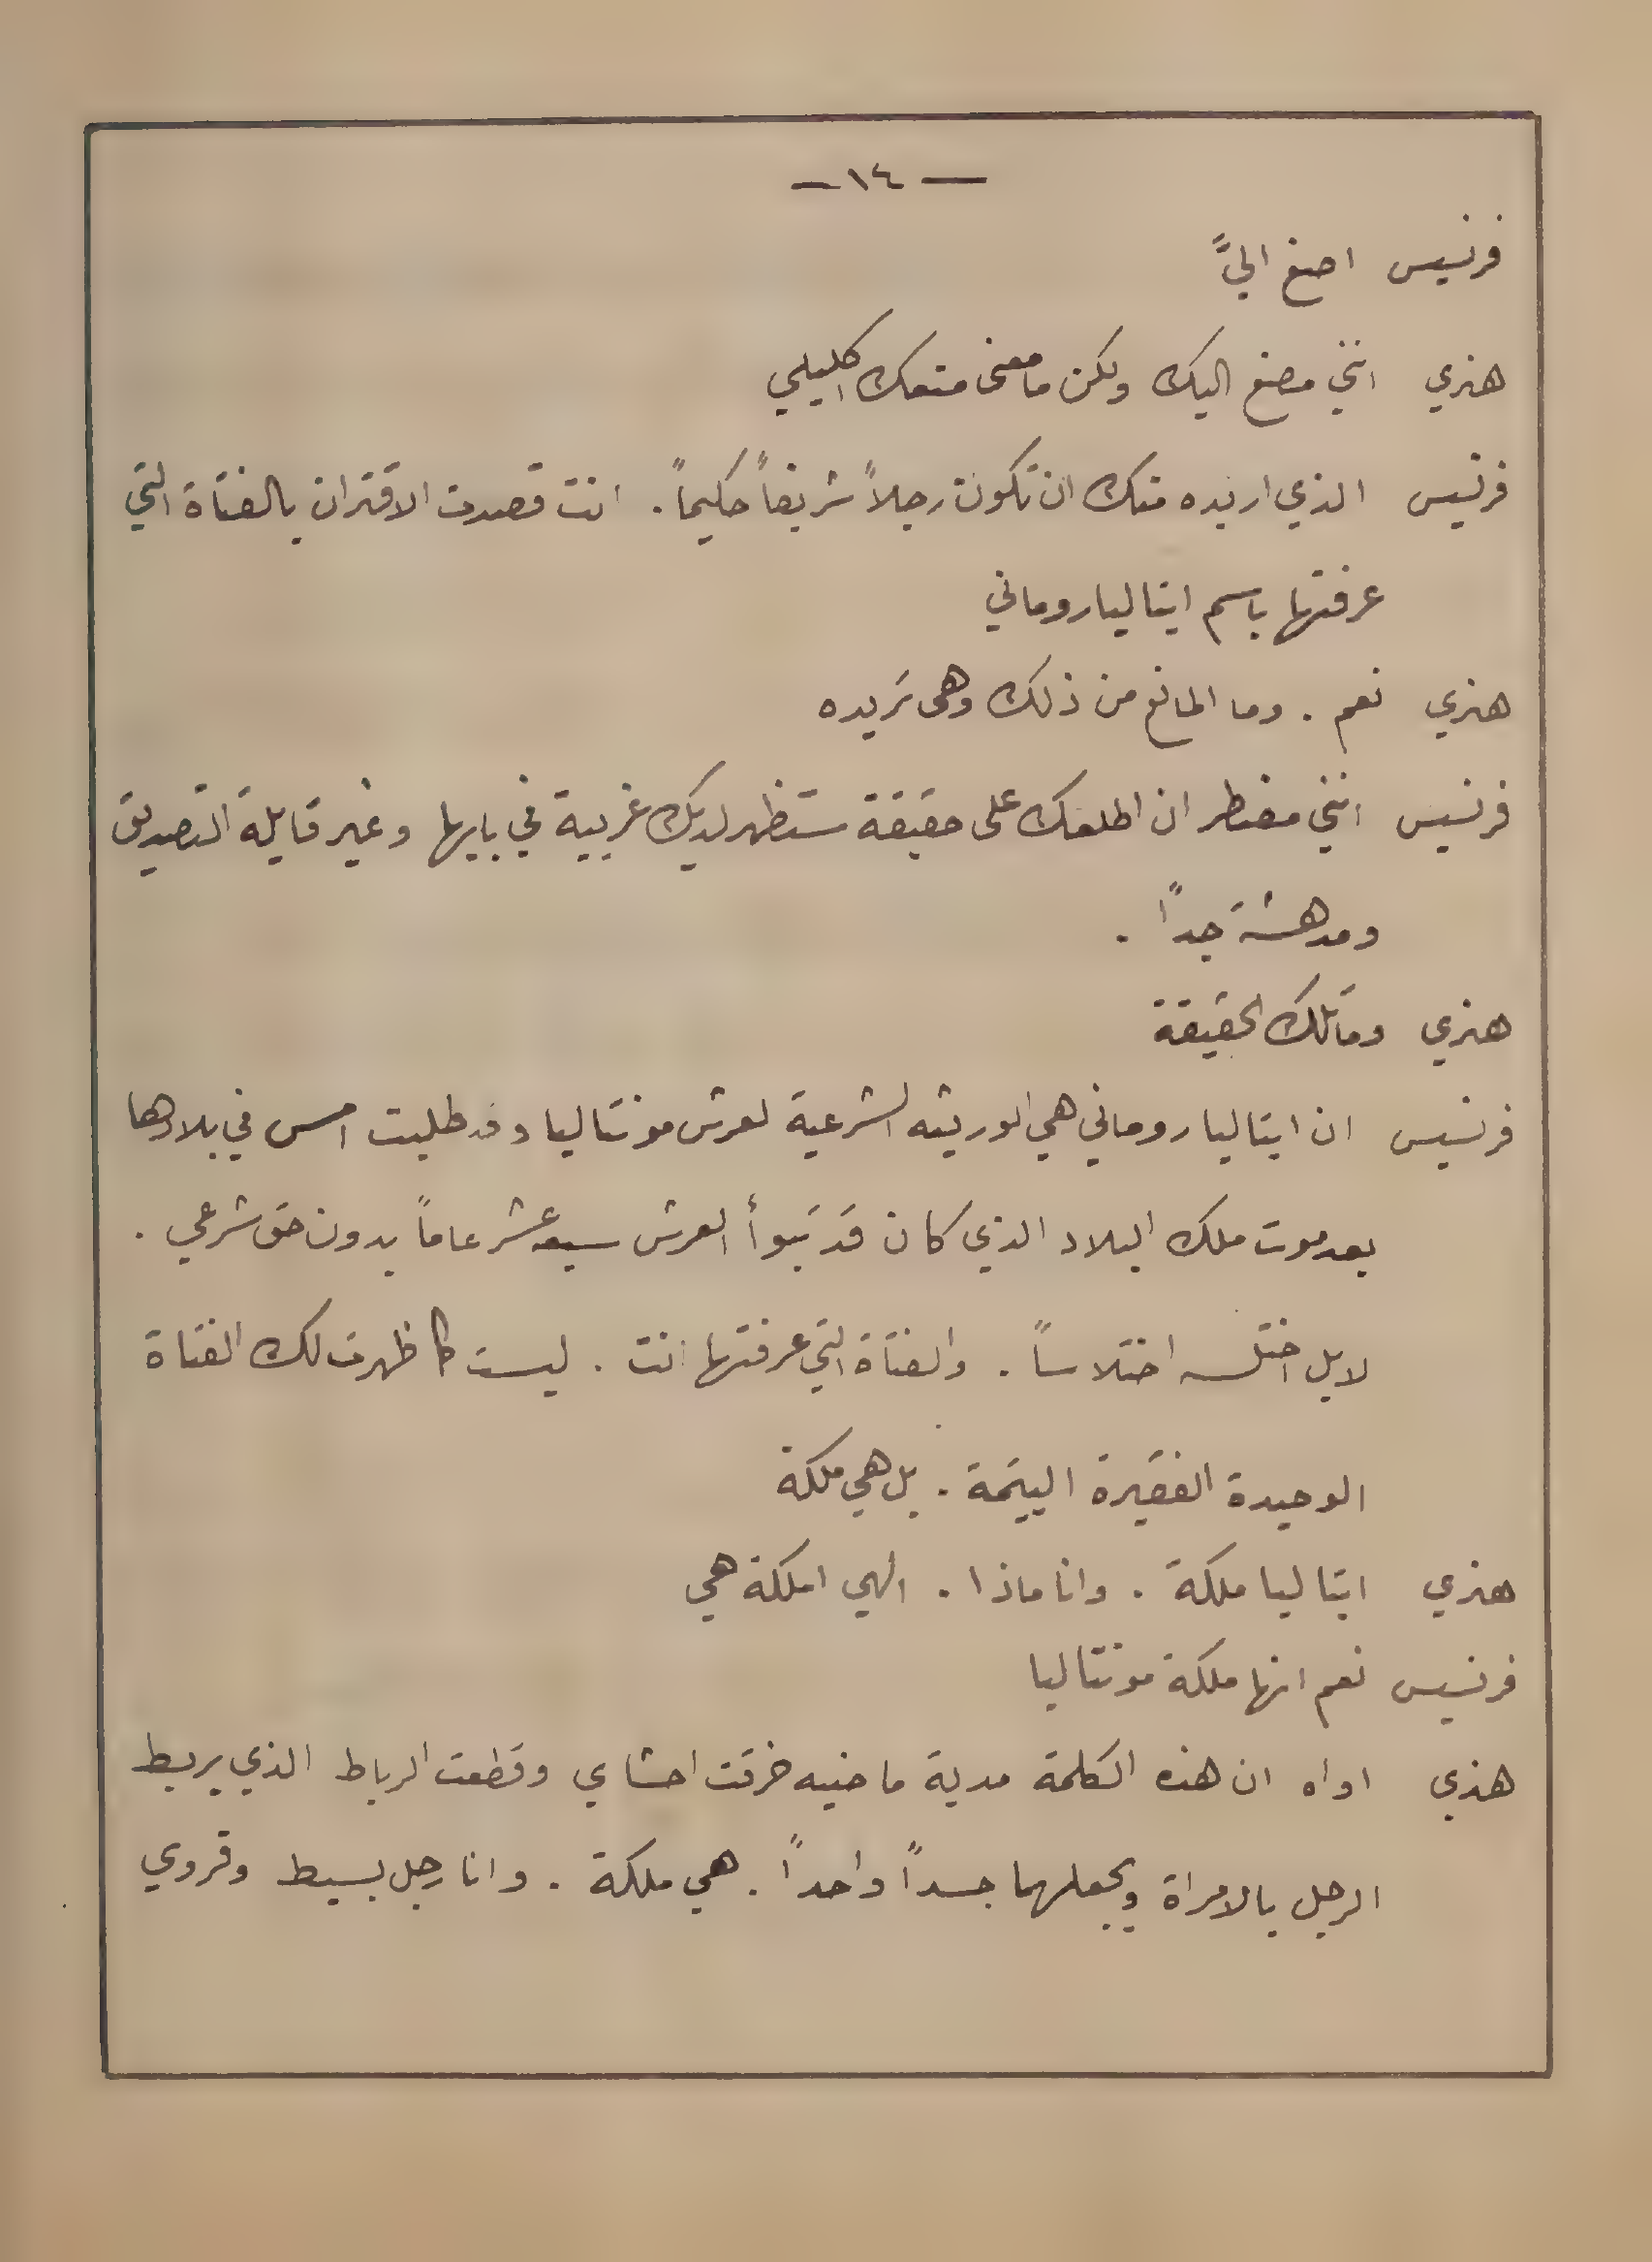 — ١٤ —
فرنسيس اصغ اليَّ
هنري انني مصغ اليك ولكن ما معنى منعك اكليلي
فرنسيس الذي اريده منك ان تكون رجلاً شريفاً حكيماً . انت قصدت الاقتران بالفتاة التي
عرفتها باسم ايتاليا روماني
هنري نعم . وما المانع من ذلك وهي تريده
فرنسيس انني مضطر ان اطلعك على حقيقة ستظهر لديك غريبة في بابها وغير قابلة التصديق
ومدهشة جداً .
هنري وما تلك الحقيقة
فرنسيس ان ايتاليا روماني هي الوريثه الشرعية لعرش مونتاليا وقد طلبت امس في بلادها
بعد موت ملك البلاد الذي كان قد تبوأ العرش سبعه عشر عاماً بدون حق شرعي .
لا بل اختلسه اختلاساً . والفتاة التي عرفتها انت . ليست كما ظهرت لك الفتاة
الوحيدة الفقيرة اليتيمة . بل هي ملكة
هنري ايتاليا ملكة . وانا ماذا . الهي املكة هي
فرنسيس نعم انها ملكة مونتاليا
هنري اواه ان هذه الكلمة مدية ماضيه خرقت احشاي وقطعت الرباط الذي يربط
الرجل بالامراة ويجعلهما جسداً واحداً . هي ملكة . وانا رجل بسيط وقروي